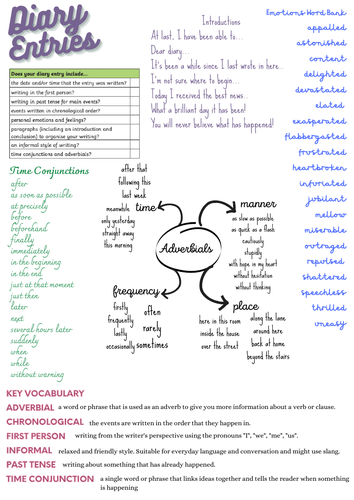 Diary
Entries
Does your diary entry include...
the date and/or time that the entry was written?
writing in the first person?
writing in past tense for main events?
events written in chronological order?
personal emotions and feelings?
paragraphs (including an introduction and
conclusion) to organise your writing?
an informal style of writing?
time conjunctions and adverbials?
Introductions
At last, I have been able to...
Dear diary...
It's been a while since I last wrote in here...
I'm not sure where to begin...
Today I received the best news...
What a brilliant day it has been!
You will never believe what has happened!
Emotions Word Bank
appalled
astonished
content
delighted
devastated
elated
exasperated
flabbergasted
frustrated
heartbroken
infuriated
jubilant
mellow
miserable
outraged
repulsed
shattered
speechless
thrilled
uneasy
Time Conjunctions
after
as soon as possible
at precisely
before
beforehand
finally
immediately
in the beginning
in the end
just at that moment
just then
later
next
several hours later
suddenly
when
while
without warning
Adverbials
time
after that
following this
last week
meanwhile
only yesterday
straight away
this morning
manner
as slow as possible
as quick as a flash
cautiously
stupidly
with hope in my heart
without hesitation
without thinking
frequency
firstly
frequently
lastly
occasionally
often
rarely
sometimes
place
here in this room
inside the house
over the street
along the lane
around here
back at home
beyond the stairs
KEY VOCABULARY
ADVERBIAL a word or phrase that is used as an adverb to give you more information about a verb or clause.
CHRONOLOGICAL the events are written in the order that they happen in.
FIRST PERSON writing from the writer's perspective using the pronouns "I", "we", "me", "us".
INFORMAL relaxed and friendly style. Suitable for everyday language and conversation and might use slang.
PAST TENSE writing about something that has already happened.
TIME CONJUNCTION a single word or phrase that links ideas together and tells the reader when something
is happening